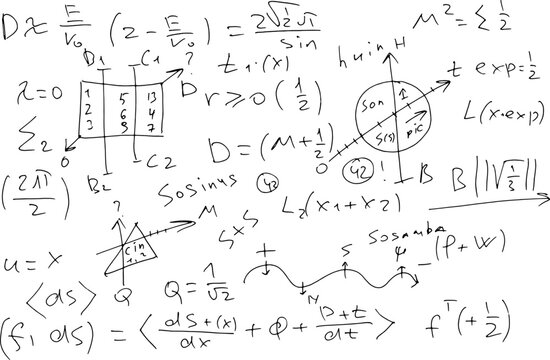 D ≈ E/V₀ (2 - E/V₀) = 2√½ √π / sin
M² = Σ ½
D1 C1 ?
t₁·(x)
huin H
t exp = ½
λ = 0
1 5 13
2 6 4
3 8 7
D
r ≥ 0 (½)
son 1
S(s) pic
L(x·exp)
Σ₂
0
B2 C2
D = (M + ½)
0
42 !
B
B ||√⅓||
(2π/2)
Sosinus
42
L₂(x1 + x2)
?
M
S×S
cin
u = x
+ S Sosamba ψ
N
- (P + W)
<ds>
Q
Q = 1/√2
(f, ds) = <ds+(x)/dx + φ + p+t/dt> fᵀ(+½)